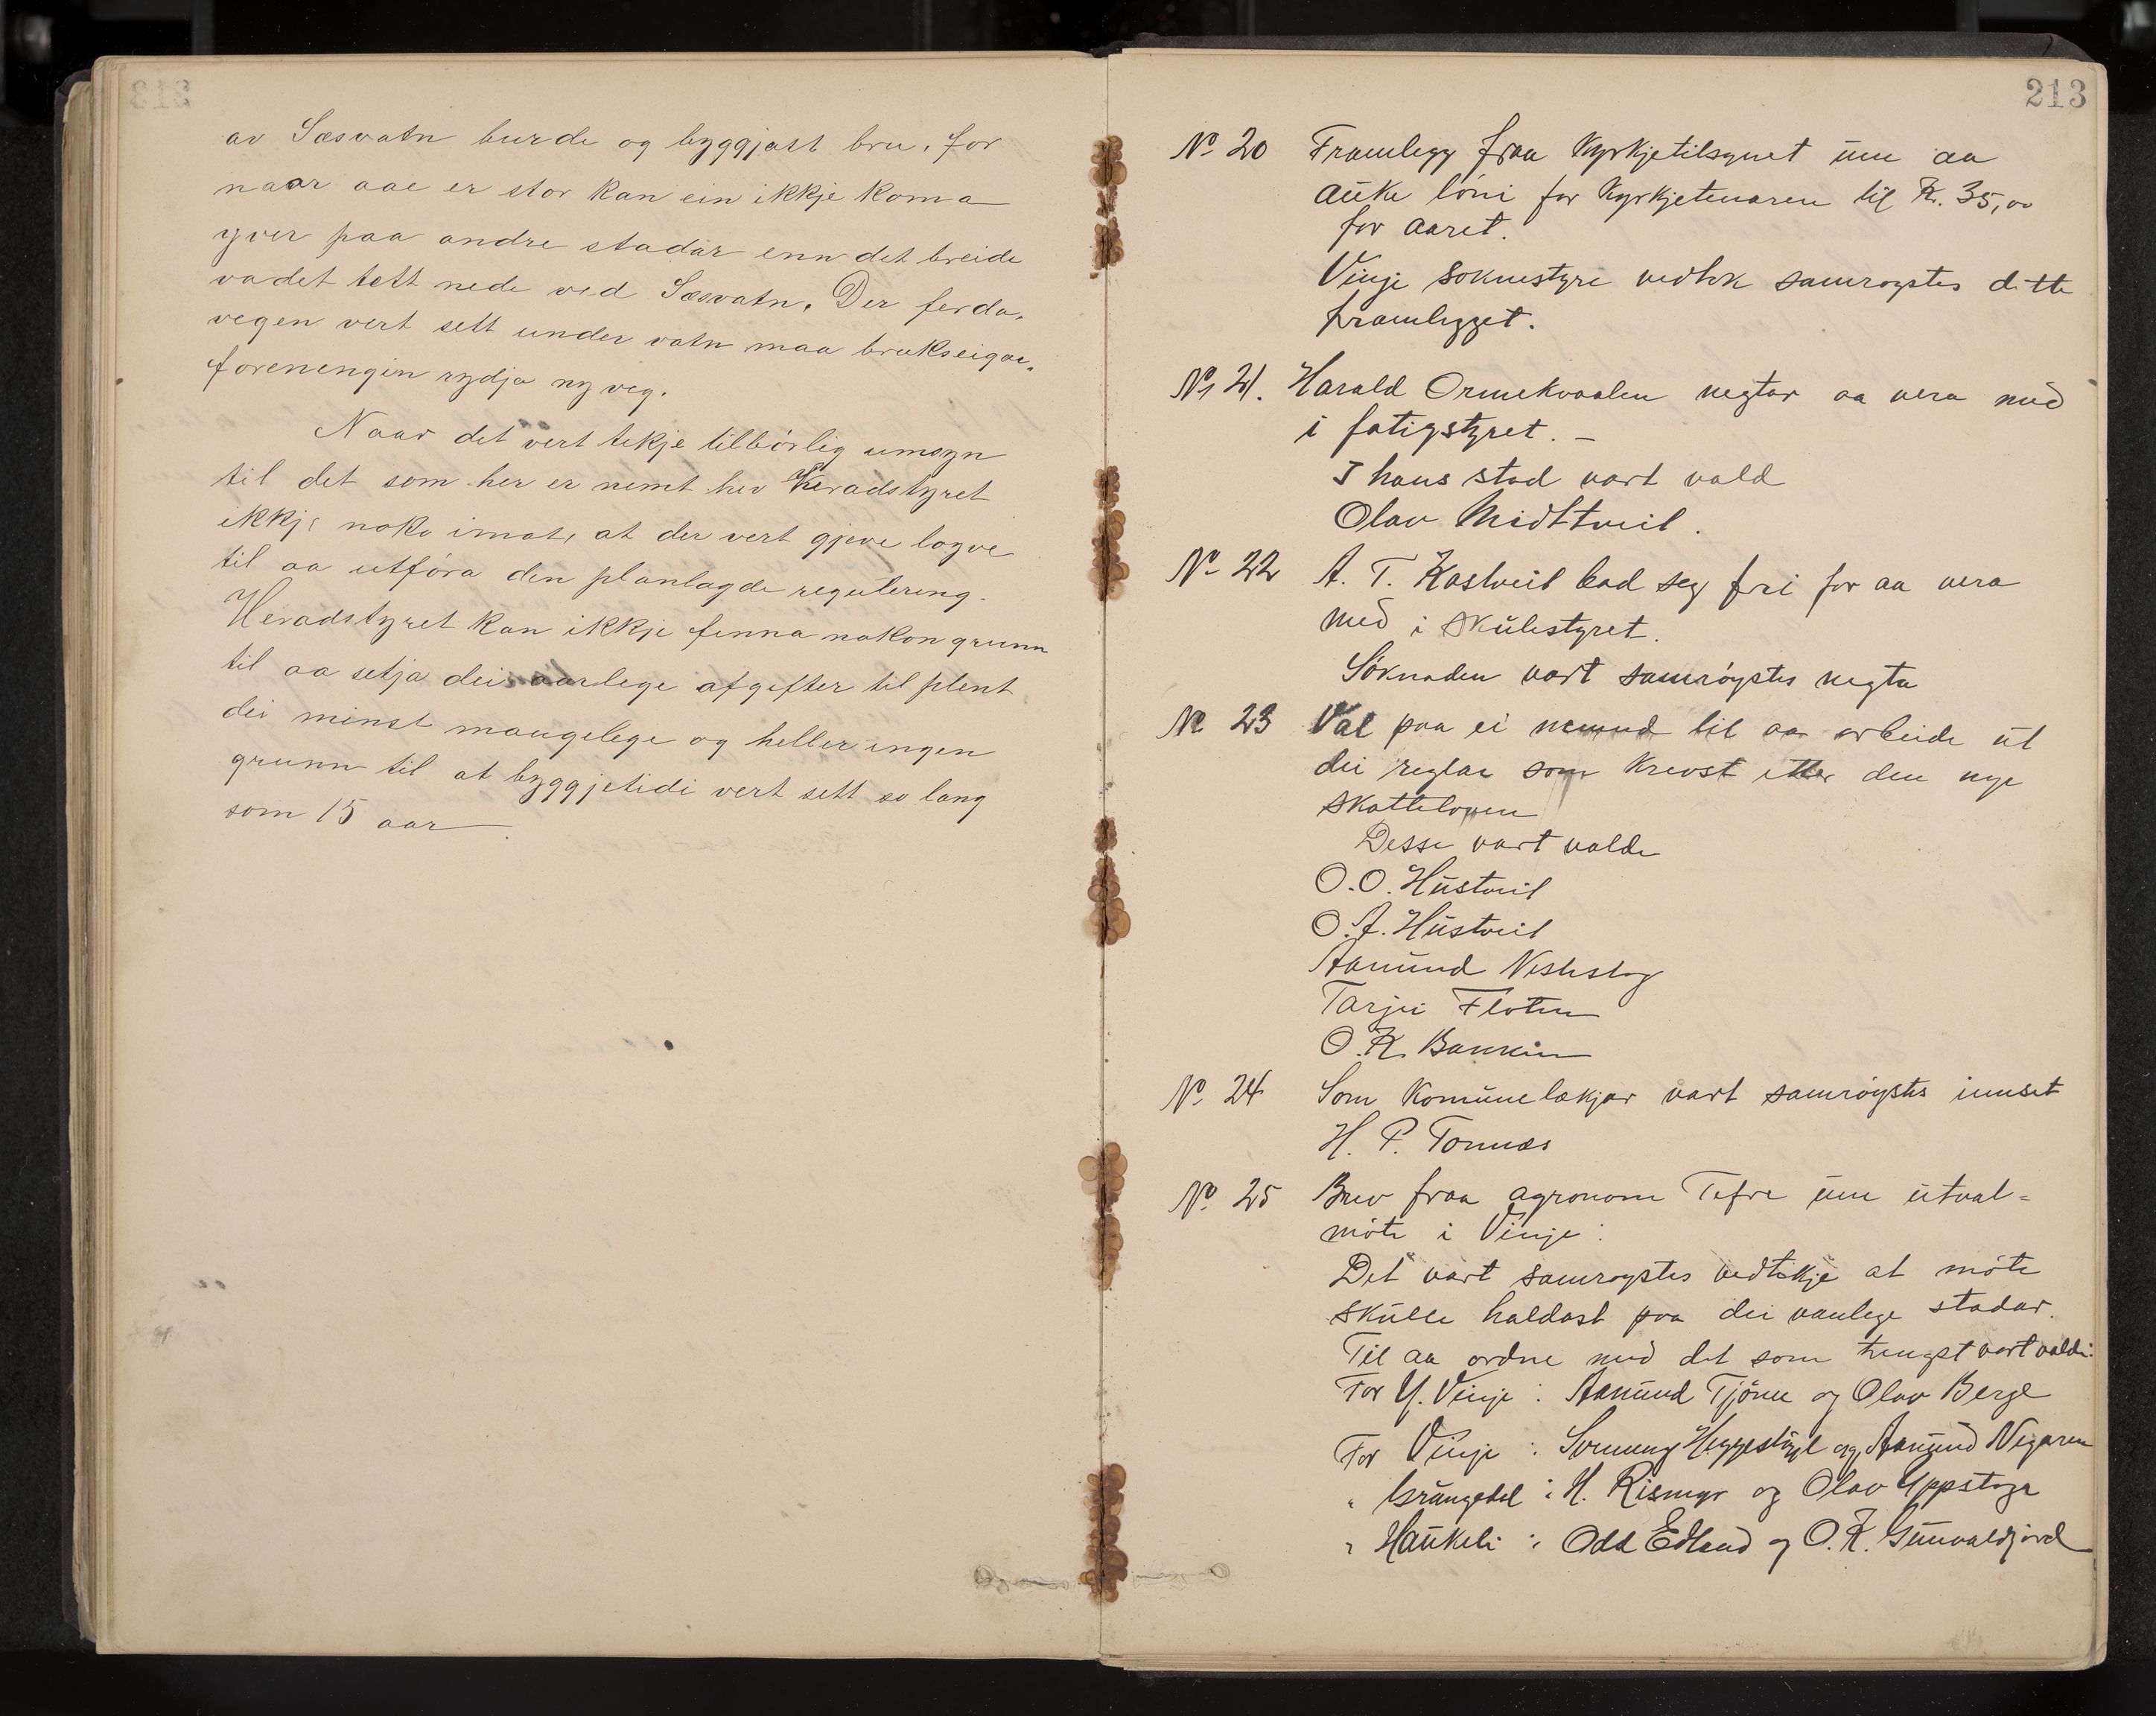 av Sæsvatn burde og byggjast bru, for
naar aae er stor kan ein ikkje koma
yver paa andre stadar enn det breide
vadet tett nede ved Sæsvatn. Der ferda-
vegen vert sett under vatn maa brukseigar-
forenengin rydja ny veg.
Naar det vert tekje tilbörlig umsyn
til det som her er nemt hev Heradstyret
ikkje noko imot, at der vert gjeve logve
til aa utföra den planlagde regulering.
Heradstyret kan ikkje finna nokon grunn
til aa setja dei aarlege afgifter til plent
dei minst mougelege og heller ingen
grunn til at byggjetidi vert sett so lang
som 15 aar
213
No 20 Framlegg fraa Kyrkjetilsynet um aa
auke löni for Kyrkjetenaren til Kr. 35,00
for aaret.
Vinje soknestyre vedtok samrøystes dette
framlegget.
No 21. Harald Ormekvaalen negtar aa vera med
i fatigstyret. –
I hans stad vart vald
Olav Midttveit.
No 22 A. T. Kostveit bad seg fri for aa vera
med i skulestyret.
Söknaden vart samröystes negta
No 23 Val paa ei nemnd til aa arbeide ut
dei reglar som krevst etter den nye
skatteloven
Desse vart valde
O. O. Hustveit
O. A. Hustveit
Aamund Vesterstog
Tarjei Floten
O. K.
No 24 Som Komunelækjar vart samröystes innset
H. P. Tonnæs
No 25 Brev fraa agronom Tefre um utval=
möte i Vinje:
Det vart samroystes vedtekje at möte
skulle haldast paa dei vanlege stadar.
Til aa ordne med det som trengst vart valde:
For Y. Vinje : Aamund Tjönn og Olav Berge
For Vinje : Sveinung Heggestöyl og Aamund Nigaren
" Grungedal : H. Rismyr og Olav Uppstoga
" Haukeli : Odd Edland og O. K. Gunvaldjord